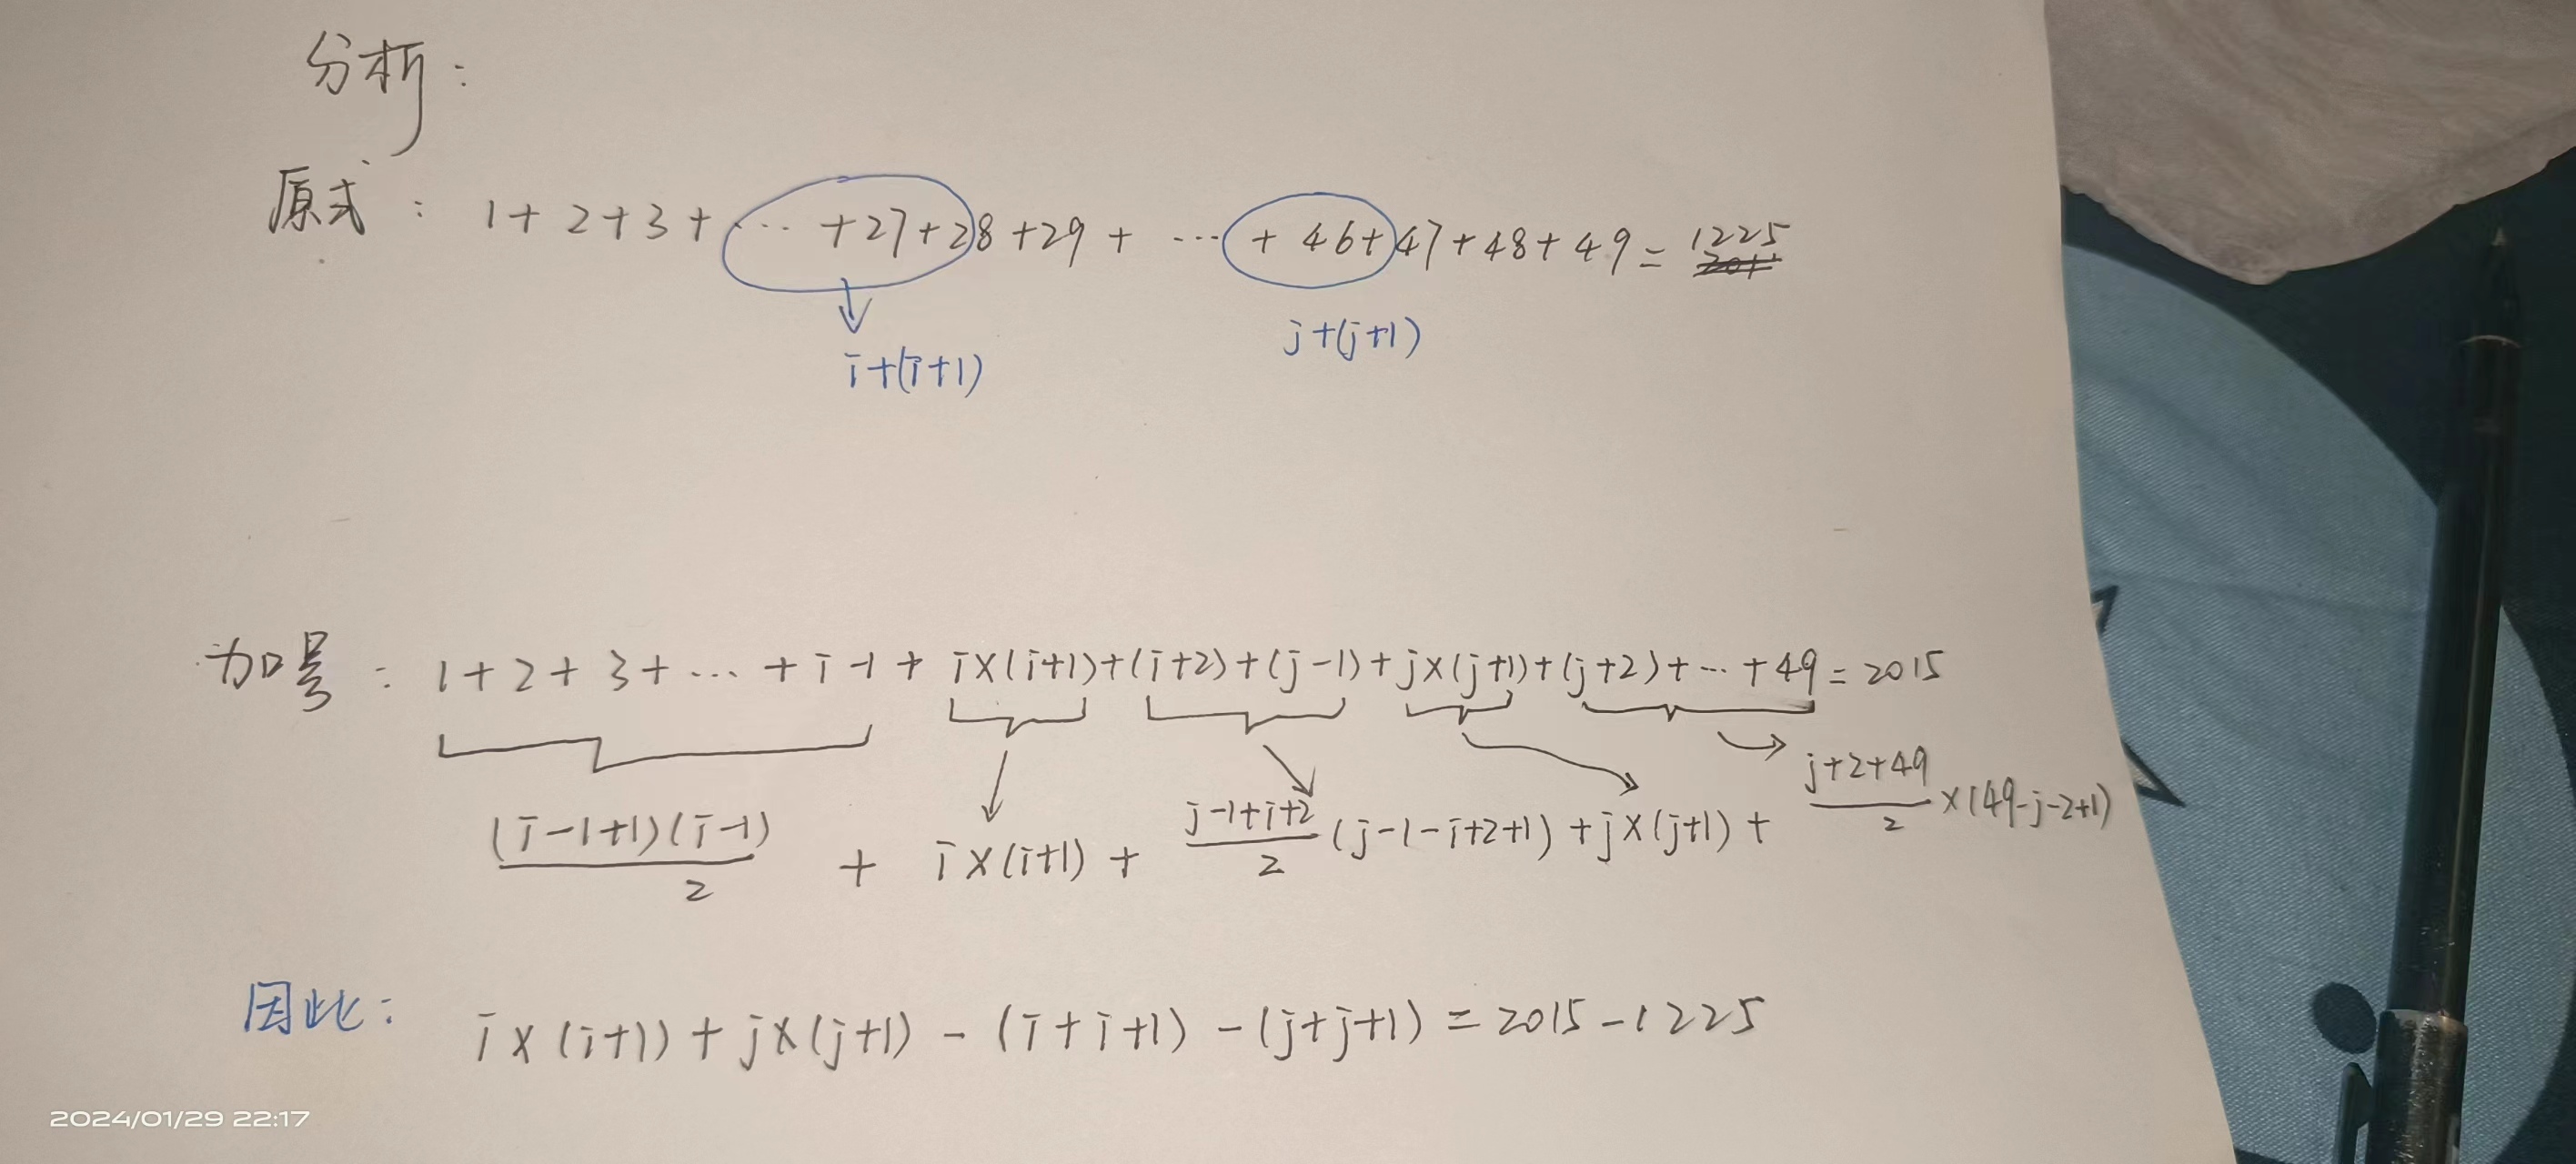 分析:
原式: 1+2+3+···+27+28+29+···+46+47+48+49=1225
i+(i+1)
j+(j+1)
加号: 1+2+3+···+i-1+i×(i+1)+(i+2)+(j-1)+j×(j+1)+(j+2)+···+49=2015
(i-1+1)(i-1)/2 + i×(i+1) + (j-1+i+2)/2 (j-1-i+2+1) + j×(j+1) + (j+2+49)/2 ×(49-j-2+1)
因此: i×(i+1)+j×(j+1)-(i+i+1)-(j+j+1)=2015-1225
2024/01/29 22:17